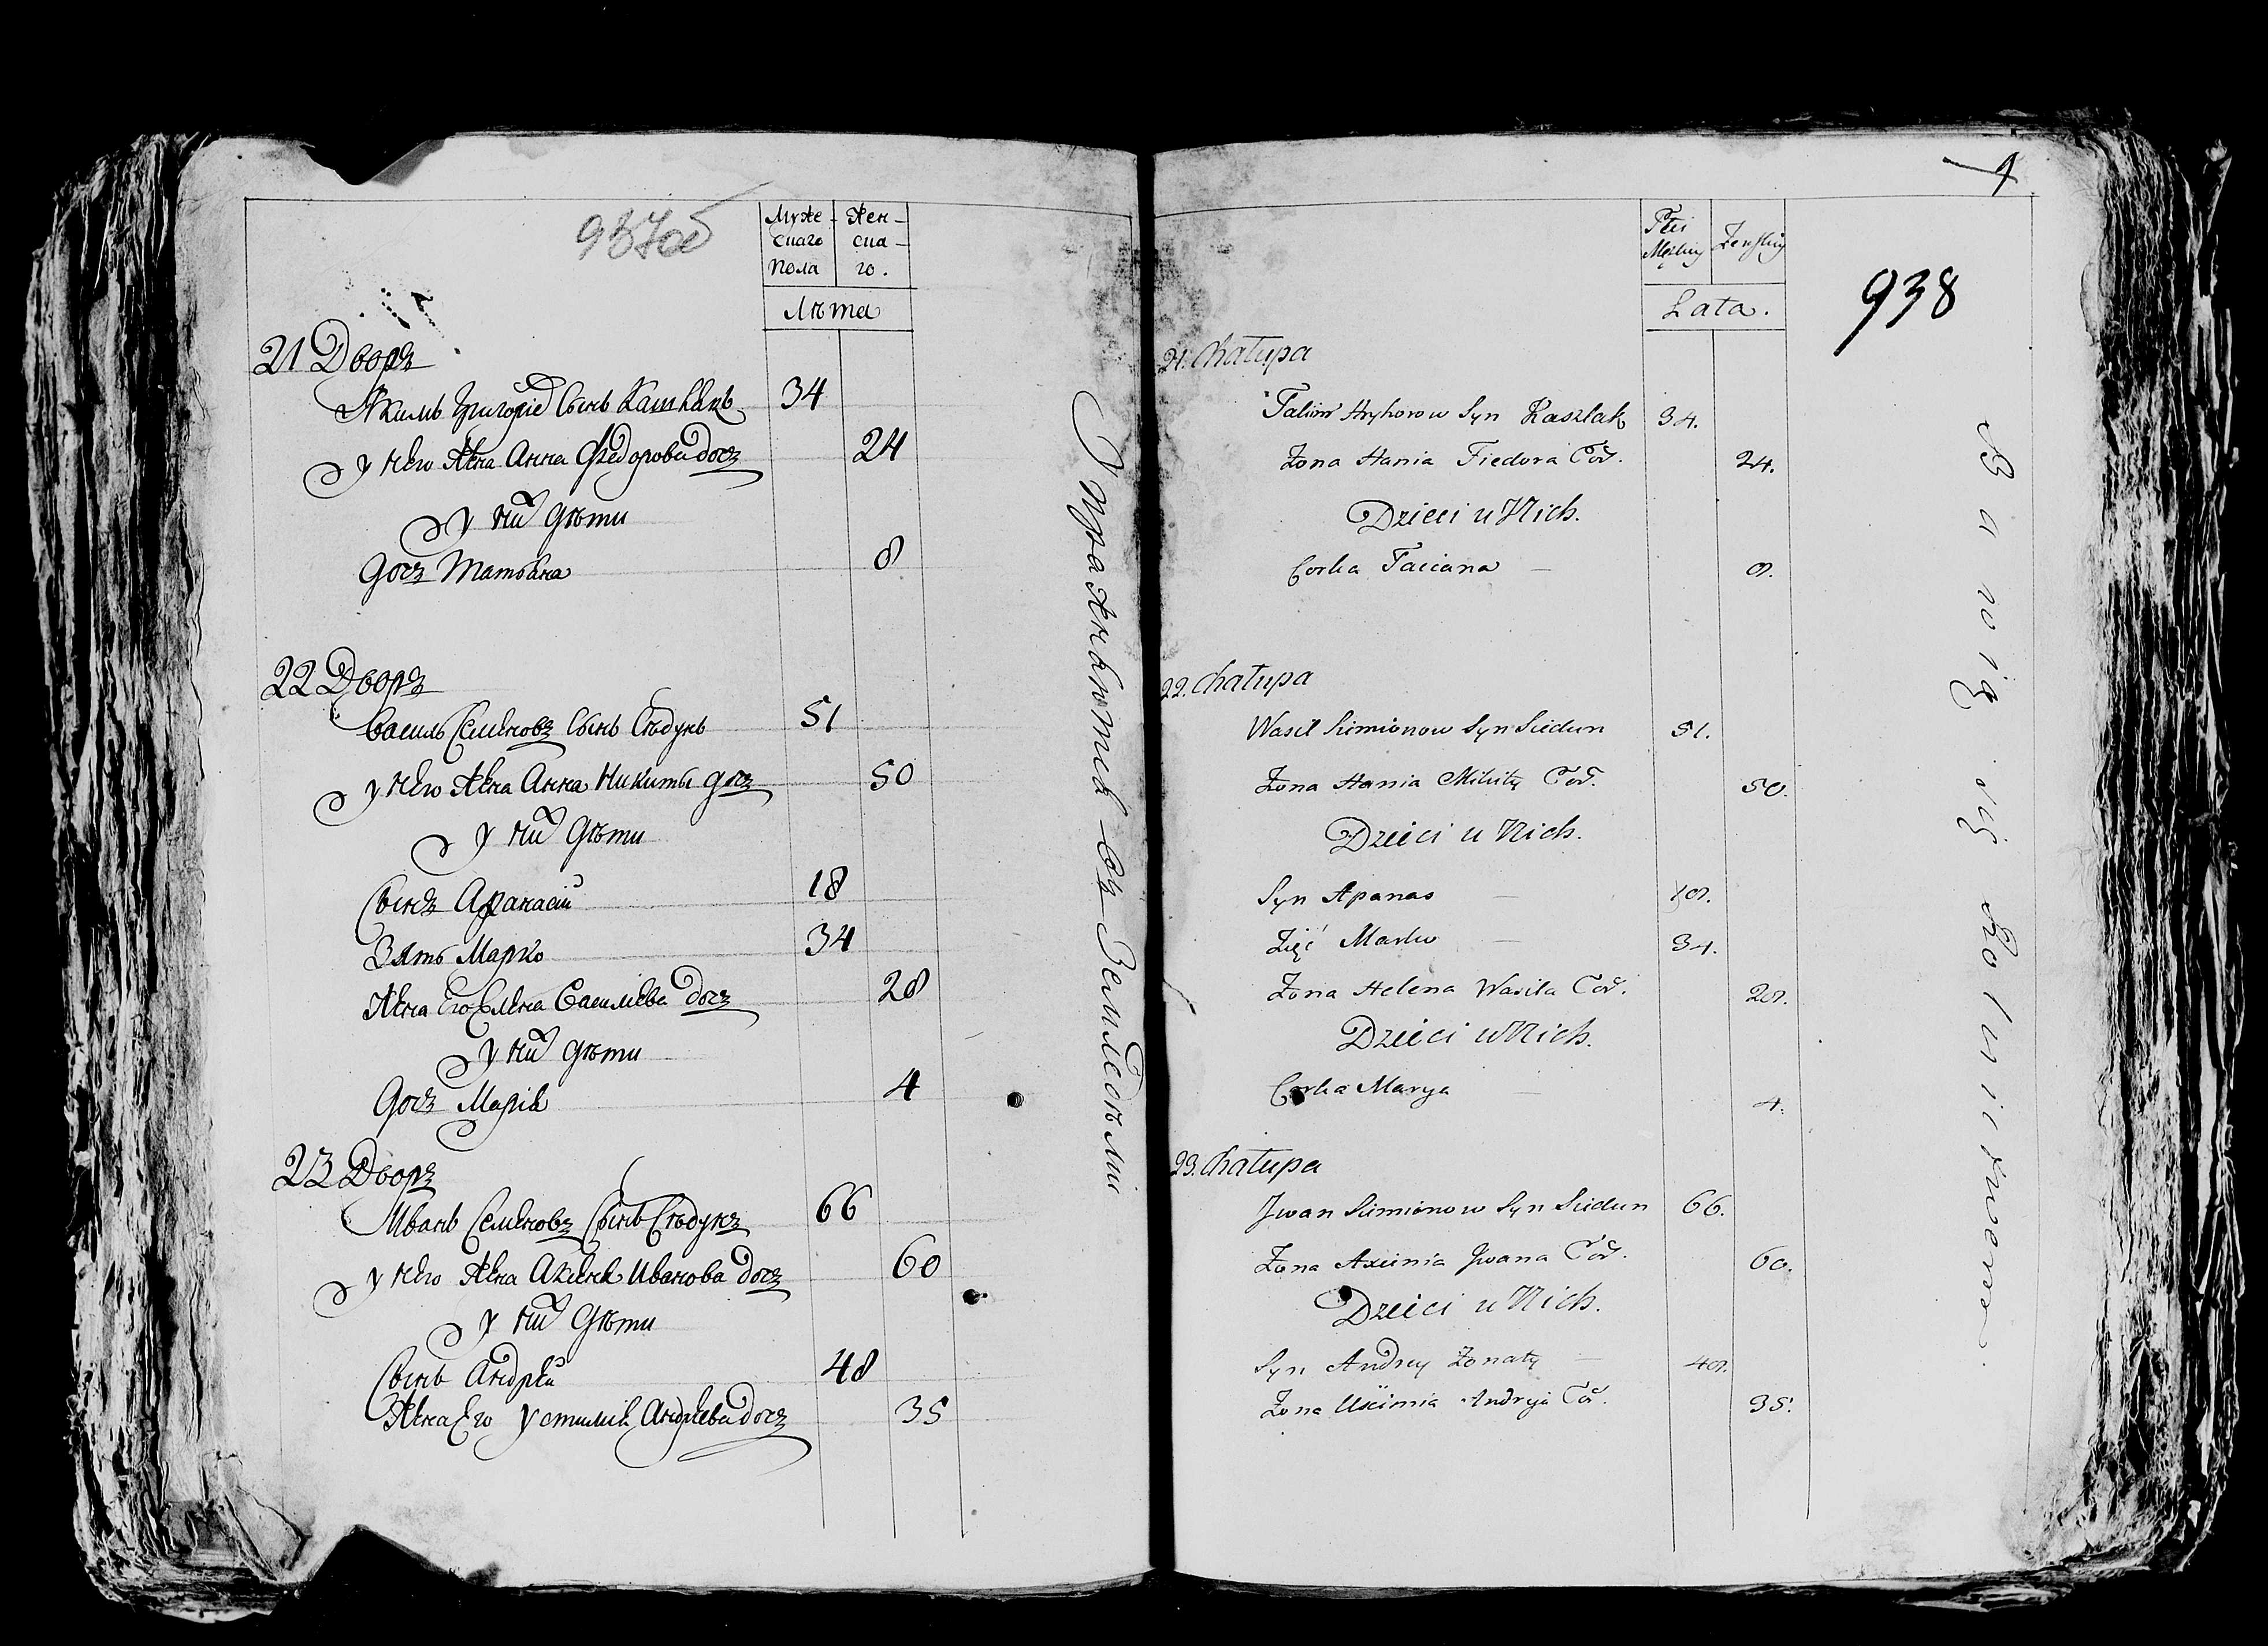 937об
Муже-
скаго
пола
Жен-
ска-
го.
Лѣта
21 Дворъ
Якимъ Григорiе Сынъ Кашлякъ 34
у него жена Анна Федорова дочъ 24
у ни дѣти
дочъ Татьяна 8
22 Дворъ
Василь Семеновъ Сынъ Сѣдунъ 51
у него жена Анна Никиты дочъ 50
у ни дѣти
Сынъ Афанасiй 18
Зять Марко 34
жена Его Елена Васильева дочъ 28
у ни дѣти
дочъ Марiя 4
23 Дворъ
Иванъ Семеновъ Сынъ Сѣдунъ 66
у него жена Аксеня Иванова дочъ 60
у ни дѣти
Сынъ Андрей 48
жена Его Устимия Андреева дочъ 35
Упражняются въ Земледѣлии
4
938
Płci
Męzkiey
Zenskiey
Lata.
21. Chałupa
Jakim Hryhorow Syn Kaszlak 34.
Zona Hania Fiedora Cor. 24.
Dzieci u Nich.
Corka Taciana 8.
22. Chałupa
Wasil Simionow Syn Siedun 51.
Zona Hania Mikity Cor. 50.
Dzieci u Nich.
Syn Apanas 18.
Zięć Marko 34.
Zona Helena Wasila Cor. 28.
Dzieci u Nich.
Corka Marya 4.
23. Chałupa
Jwan Simionow Syn Siedun 66.
Zona Axiinia Jwana Cor. 60.
Dzieci u Nich.
Syn Andrey Zonaty 48.
Zona Uscimia Andreja Cor. 35.
Bawią się Rolnictwem